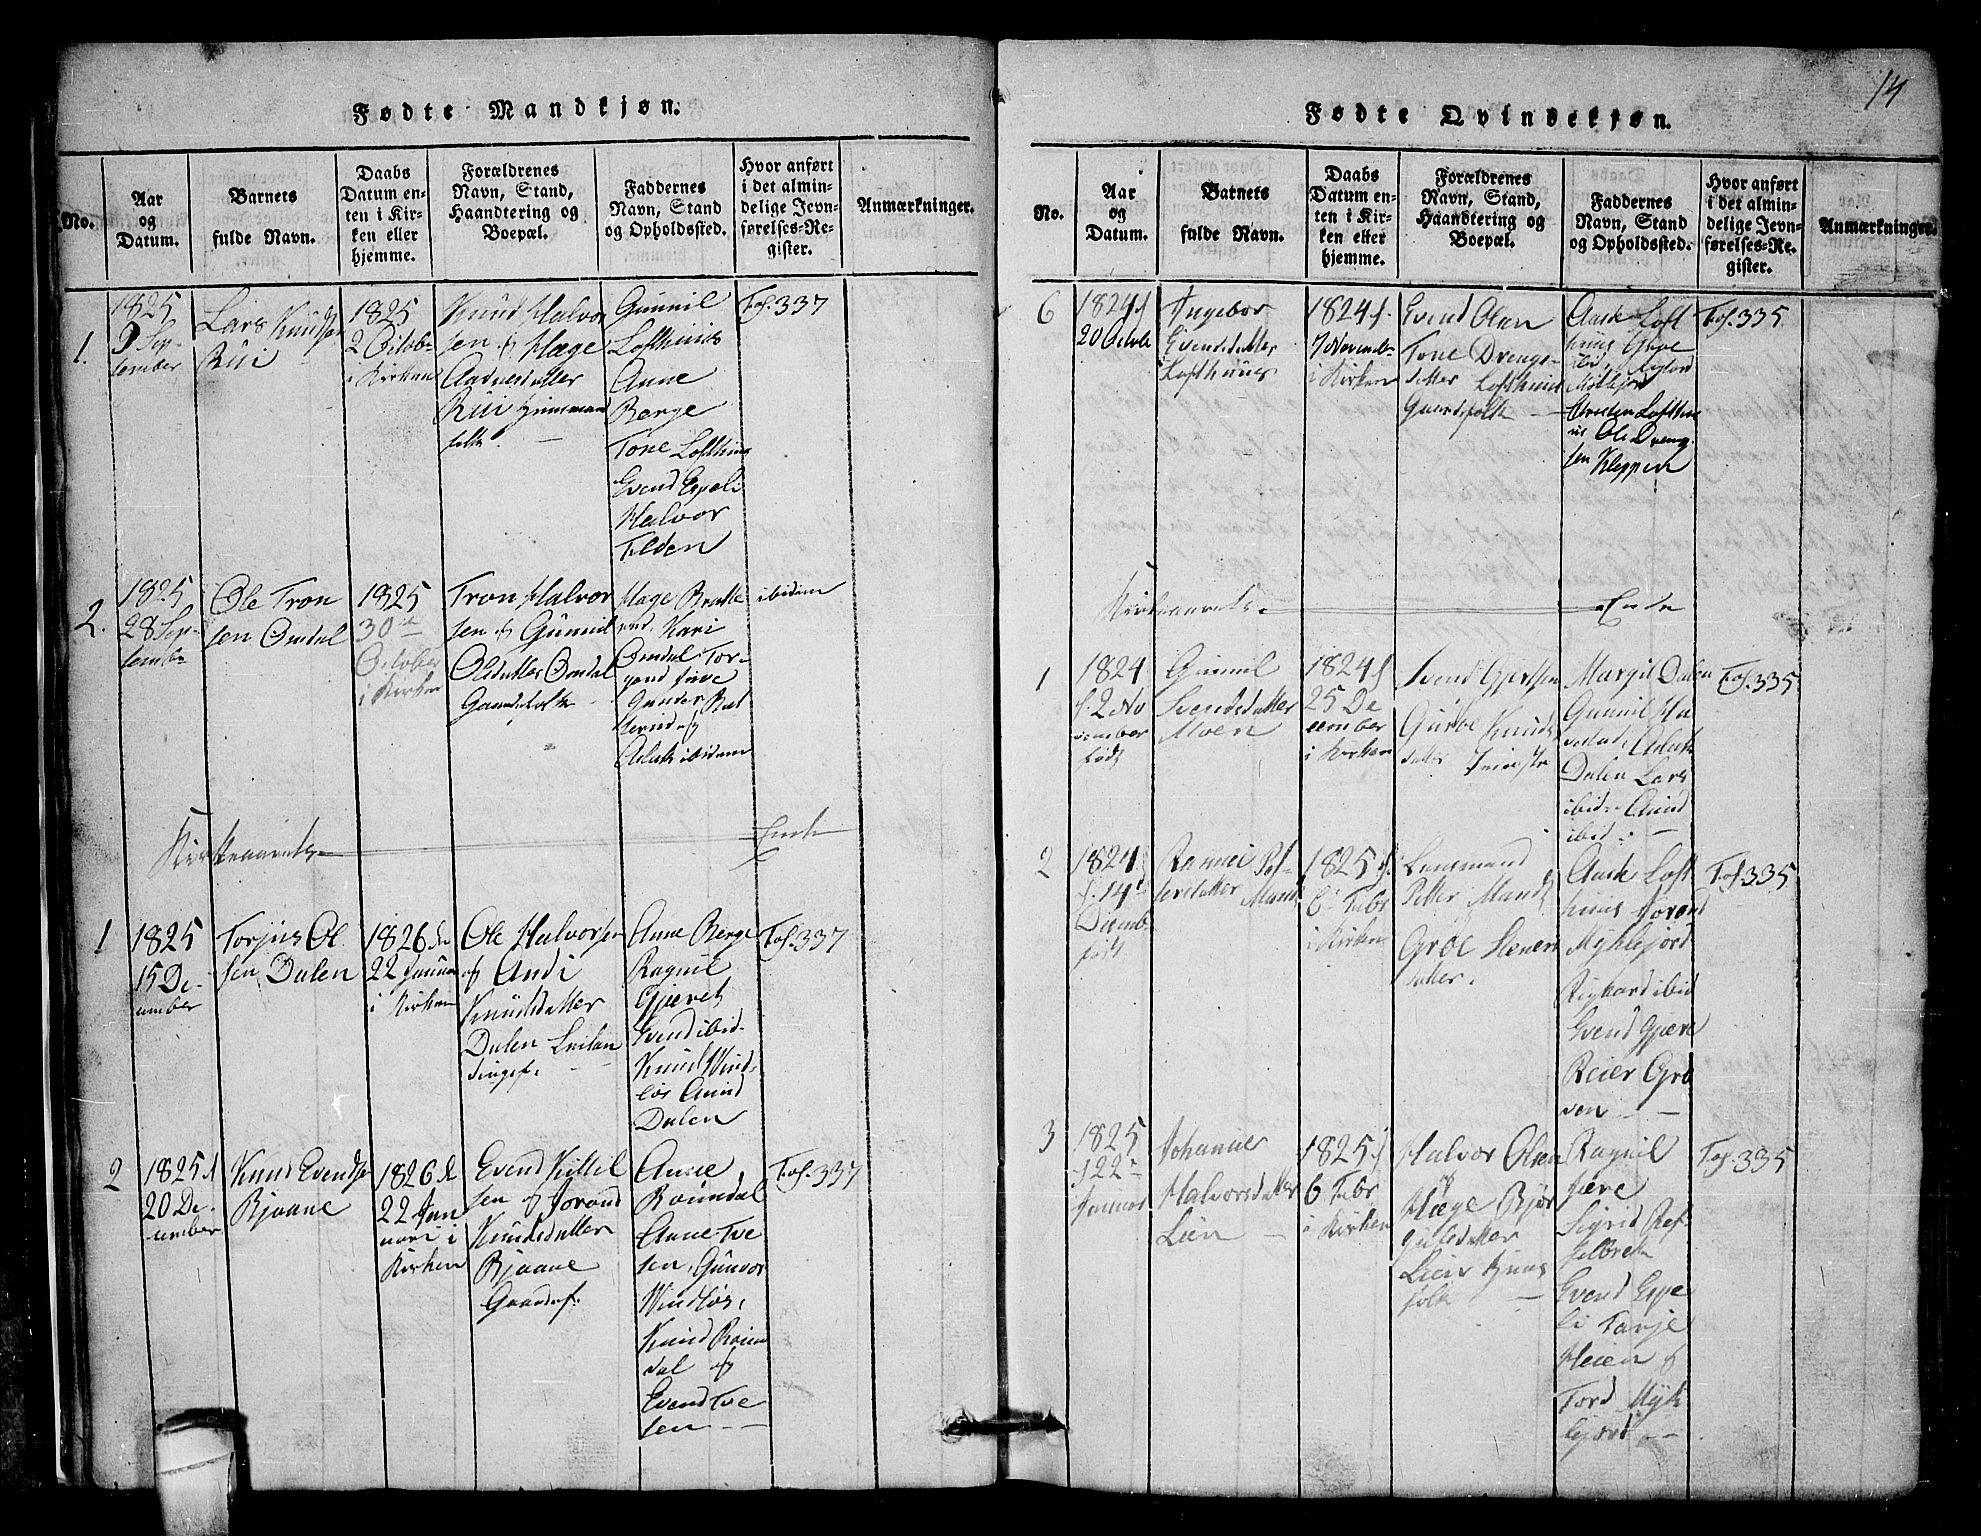 Fødte Mandkjøn.
No.
Aar
og
Datum.
Barnets
fulde Navn.
Daabs
Datum en-
ten i Kir-
ken eller
hjemme.
Forældrenes
Navn, Stand,
Haandtering og
Boepæl.
Faddernes
Navn, Stand
og Opholdssted.
Hvor anført
i det almin-
delige Jevn-
førelses-Re-
gister.
Anmærkninger.
1.
1825
9 Sep-
tember
Lars Knudsen
Rüi
1825
2 Octob-
i Kirken
Knud Halvor
sen og Hæge
Aadnesdatter
Rüi Huusmand
folk
Gunnil
Lofthuus
Anne
Berge
Tone Lofthuus
Evend Espeli
Halvor
Felden
Fol. 337
2.
1825
28 Sep-
tembr
Ole Tron
sen Omdal
1825
30te
October
i Kirken
Tron Halvor
sen og Gunnil
Olsdatter Omdal
Gaardsfolk
Hage Bratte
rud. Kari
Omdal Tor-
Aslak ibidem
ibidem
Kirkeaarets Ende
1
1825
15 De-
cember
Torjus Ol-
sen Dalen
1826 d.
22 Januar
i Kirken
Ole Halvorsen
og Andi
Knudsdatter
Dalen Leilæn
dingef.
Anne Berge
Ragnil
Gjervet
Evend ibid-
Knud Vind-
løs Aanund
Dalen
Fol. 337
2
1825 d
20 De-
cember
Knud Evendsen
Bjaane
1826 d
22 Jan
uari i
Kirken
Evend Kittil
sen og Jorand
Knudsdatter
Bjaane
Gaardsf.
Anne
Raundal
Anne Tve
ten, Gunvor
Vindløs,
Knud Raun
dal og
Evend Tve
ten
Fol. 337
14
Fødte Qvindekjøn.
No.
Aar
og
Datum.
Barnets
fulde Navn.
Daabs
Datum en-
ten i Kir-
ken eller
hjemme.
Forældrenes
Navn, Stand,
Haandtering og
Boepæl.
Faddernes
Navn, Stand
og Opholdssted.
Hvor anført
i det almin-
delige Jevn-
førelses-Re-
gister.
Anmærkninger.
6
1824 d
20 Octob
Ingebor
Evendsdatter
Lofthuus
1824 d.
7 Novemb-
i Kirken
Evend Olsen
Tone Drengs-
datter Lofthuus
Gaardsfolk
Aase Loft
huus
Myklejord
Lofthu
us Ole Dreng-
sen Kleppen
Fol. 335
Kirkeaarets Ende
1
1824
d. 2 No
vember
født
Gunnil
Svendsdatter
Moen
1824 d
25 De
cember
i Kirken
Svend Gjertsen
Guroe Knuds
datter
Margit Dalen
Gunnil
Aslak
Dalen Lars
ibid: Aanund
ibid:
Fol. 335
2
1824
d. 14d
Decemb.
født
1825 d.
6 Febr
i Kirken
Lensmand
Petter Mand
Groe Steners
datter.
Aase Loft
huus Jorand
Myklejord
Rigbord ibid
Evend Gjære
Reier Grö
ven
Fol. 335
3
1825
d 22de
Januar
Johanne
Halvorsdatter
Lien
1825 d
6 Febr
i Kirken
Halvor Olsen
og
Hæge Bjør
gulsdatter
Lien Huus
folk
Ragnil
Jøre
Sigrid
Evend Espe
li Tarje
Heien og
Tord Myk
lejord
Fol. 335